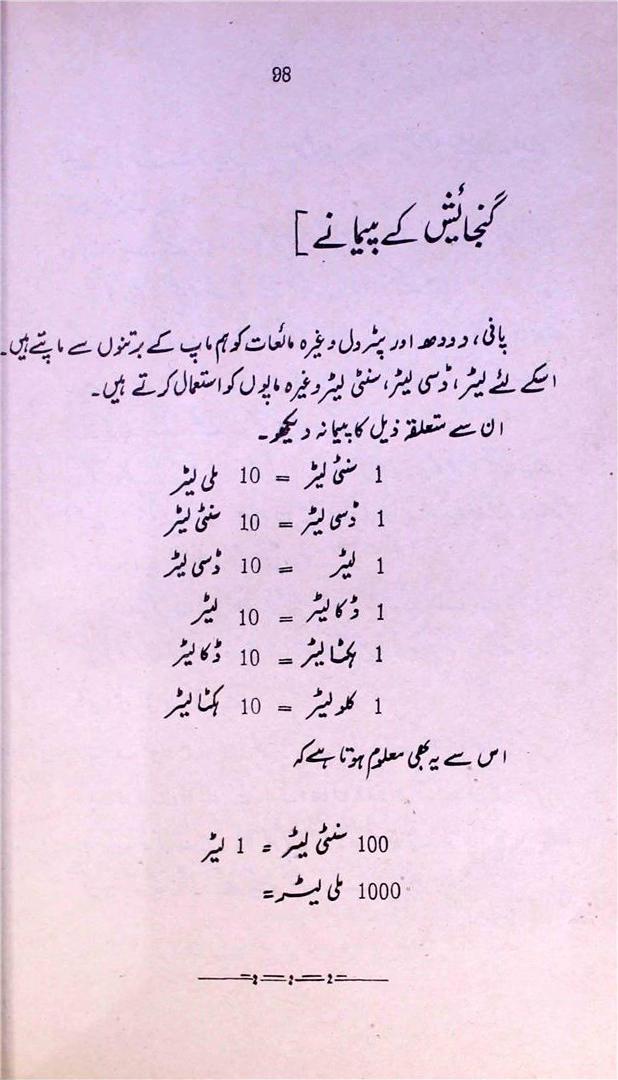 98
گنجائیش کے پیمانے ]
پانی، دودھ اور پٹرول وغیرہ مائعات کو ہم ماپ کے برتنوں سے ماپتے ہیں۔
اسکے لئے لیٹر، ڈسی لیٹر، سنٹی لیٹر وغیرہ ماپوں کو استعمال کرتے ہیں۔
ان سے متعلقہ ذیل کا پیمانہ دیکھو۔
1 سنٹی لیٹر = 10 ملی لیٹر
1 ڈسی لیٹر = 10 سنٹی لیٹر
1 لیٹر = 10 ڈسی لیٹر
1 ڈکا لیٹر = 10 لیٹر
1 ہکٹا لیٹر = 10 ڈکا لیٹر
1 کلو لیٹر = 10 ہکٹا لیٹر
اس سے یہ بھی معلوم ہوتا ہے کہ
100 سنٹی لیٹر = 1 لیٹر
1000 ملی لیٹر =